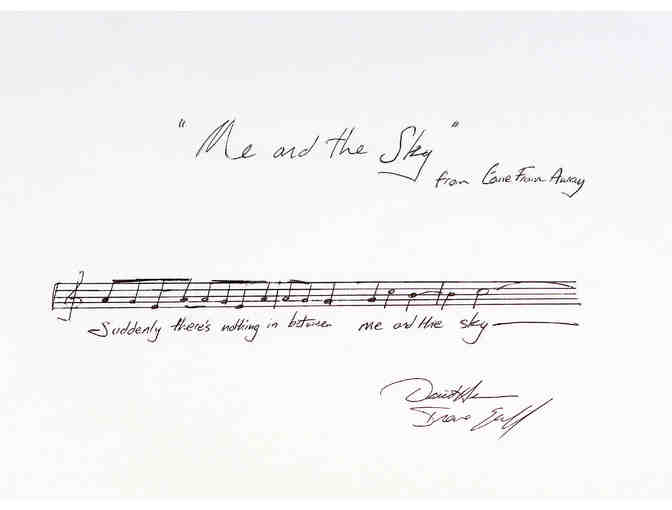 "Me and the Sky"
from Come From Away
Suddenly there's nothing in between me and the sky
David Hein
Irene Sankoff